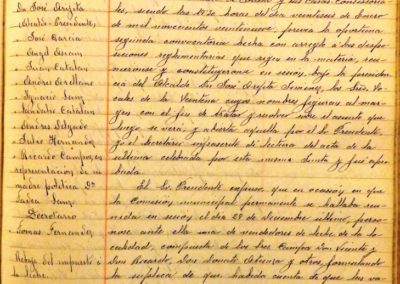 Dn José Arjita
Alcalde-Presidente,
José García
Angel Asram
Juan Catalan
Andres Arellano
Ignacio Sanz
Leandro Catalan
Andres Delgado
Julio Hernandez
Arcadio Campos, en
representacion de su
madre politica Dª
Luisa Sanz
Secretario
Tomas Fernandez
Rebaja del impuesto a
la leche.
les, siendo las 19,30 horas del dia veintiseis de Enero
de mil novecientos veintinueve, previa la oportuna
segunda convocatoria hecha con arreglo a las dispo-
siciones reglamentarias que rigen en la materia, reu-
nieronse y constituyeronse en sesion, bajo la presiden-
cia del Alcalde Dn José Arjita Jimenez, los Sres Vo-
cales de la cuyos nombres figuran al mar-
gen con el fin de tratar y resolver sobre el asunto que
luego se vera; y abierta aquella por el Sr Presidente,
yo el secretario infrascrito di lectura del acta de la
ultima celebrada por esta misma Junta y fué apro-
bada.
El Sr Presidente expuso, que en ocasion, en que
la Comision municipal permanente se hallaba
reunida en sesion el dia 29 de diciembre ultimo, perso-
nose ante ella una de vendedores de leche de la lo-
calidad, compuesta de los Sres Campos Don Vicente y
Don Ricardo, Don y otros, formulando
la suplica de que habida cuenta de que las va-